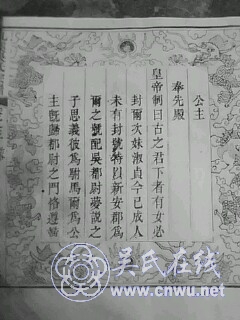 公主
奉先殿
皇帝制曰古之君下者有女必
封爾次妹淑貞今已成人
未有封號特以新安郡爲
爾之號配吳都尉夢說之
子思義彼爲駙馬爾爲公
主既歸都尉之門恪遵
吴氏在线
www.cnwu.net